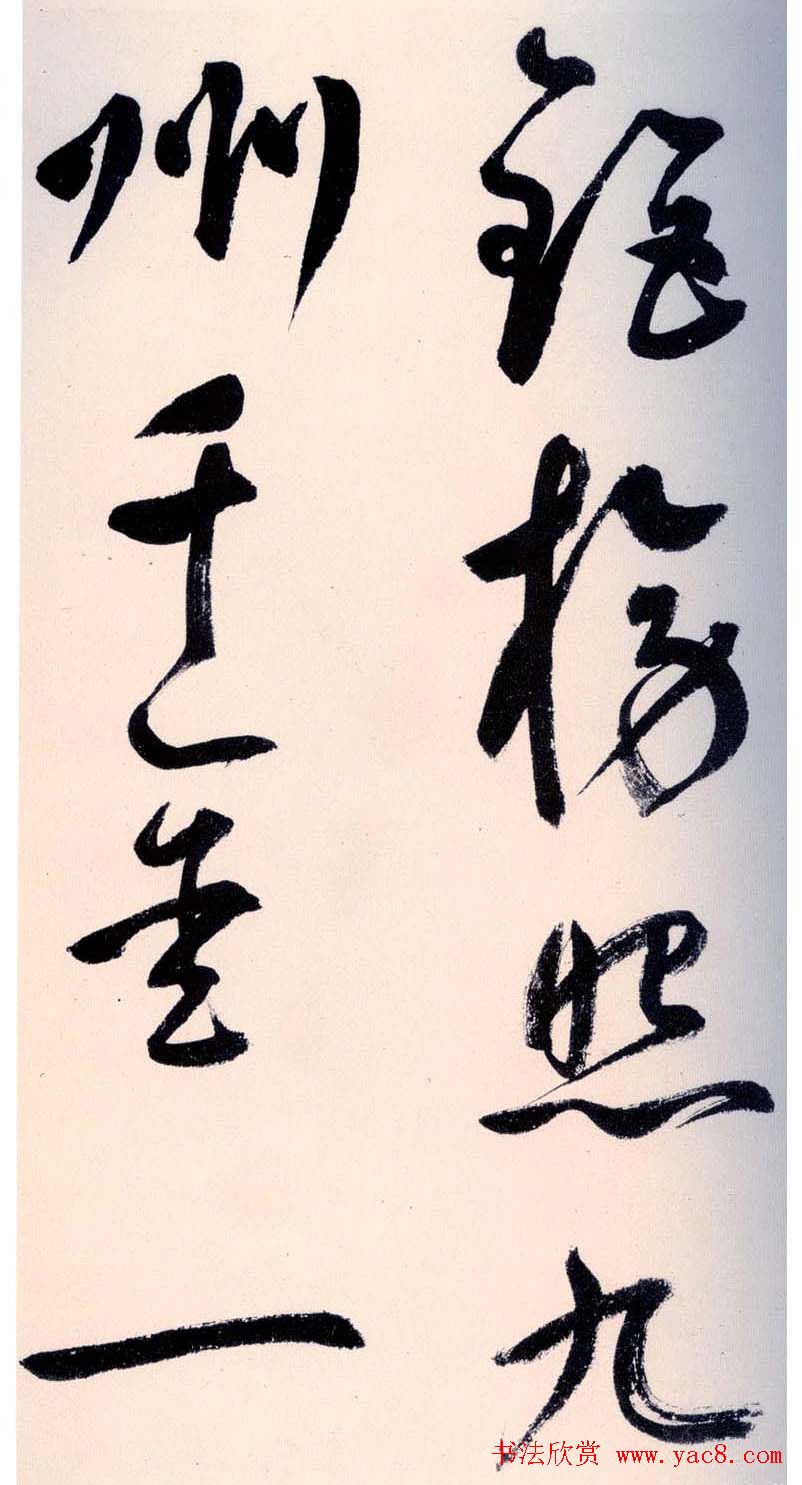 銀榜照九
州千一
书法欣赏 www.yac8.com